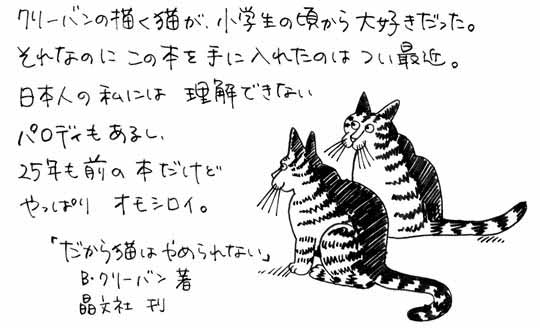 クリーバンの描く猫が、小学生の頃から大好きだった。
それなのに この本を手に入れたのは つい最近。
日本人の私には 理解できない
パロディもあるし、
25年も前の本だけど
やっぱり オモシロイ。
「だから猫はやめられない」
B・クリーバン 著
晶文社 刊